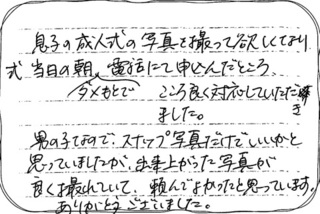 息子の成人式の写真を撮って欲しくており
式当日の朝、電話にて申込んだところ、
ダメもとで
こころ良く対応していただき
ました。
男の子なので、スナップ写真だけでいいかと
思っていましたが、出来上がった写真が
良く撮れていて、頼んでよかったと思っています。
ありがとうございました。